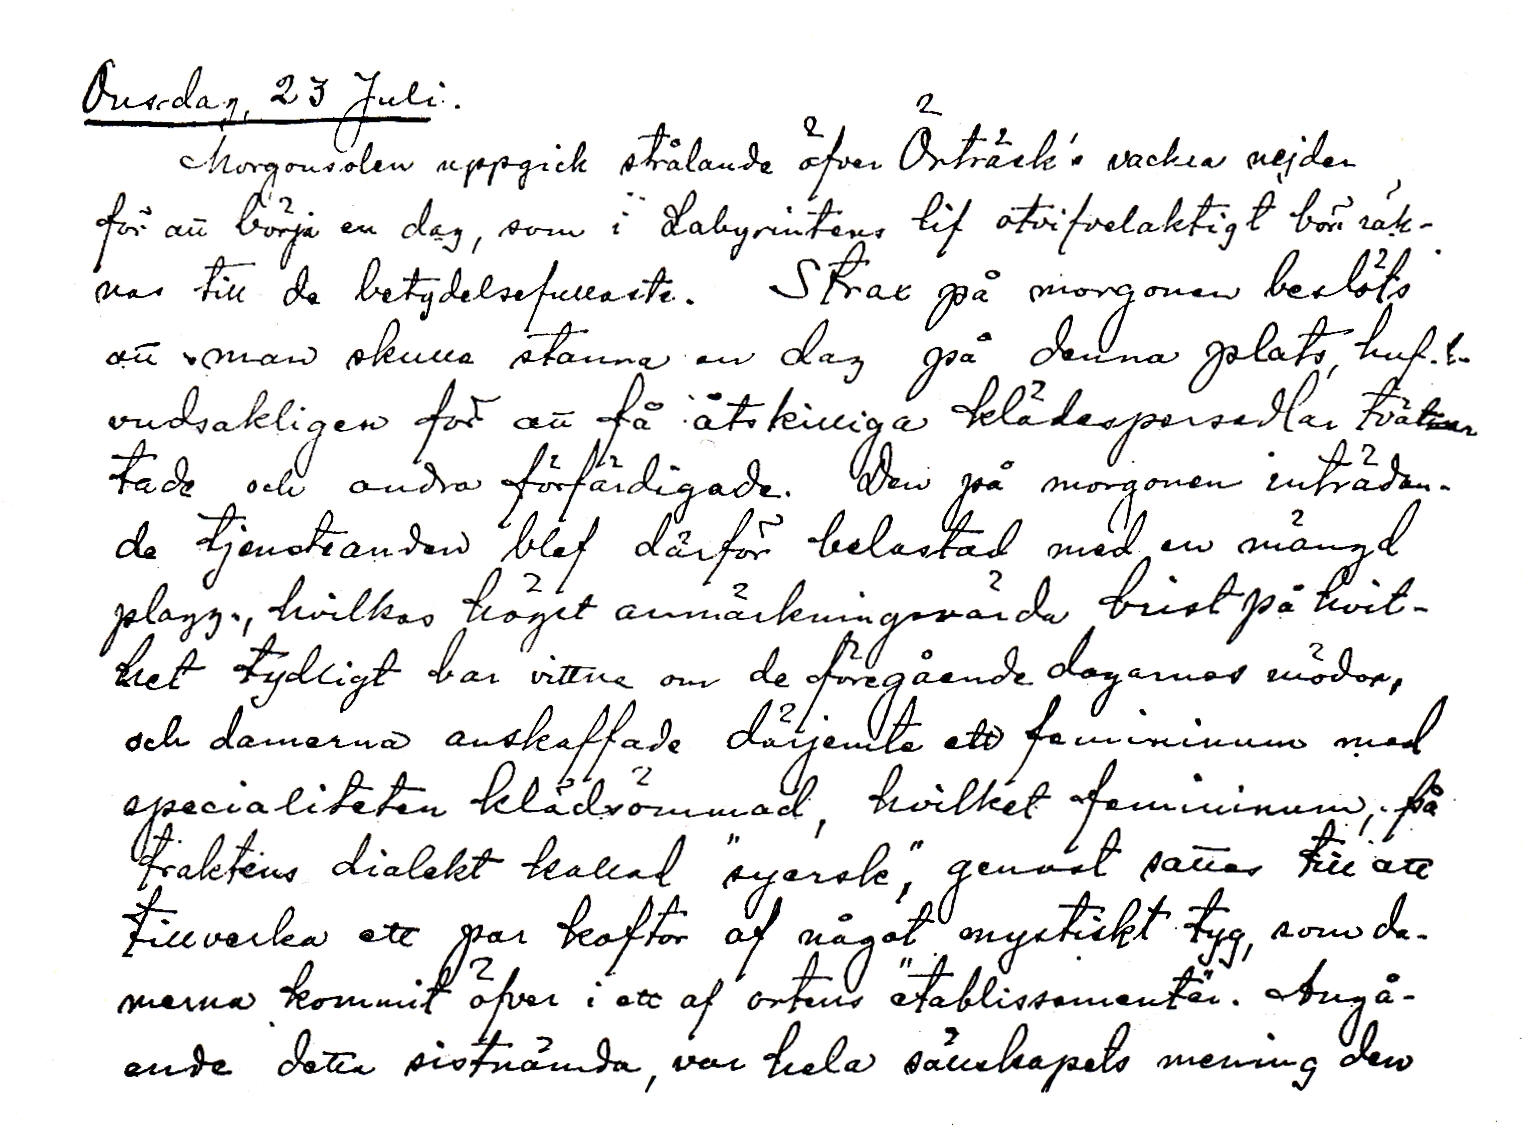 Onsdag, 23 Juli.
Morgonsolen uppgick strålande öfver Örträsk's vackra nejder
för att börja en dag, som i Labyrintens lif otvifvelaktigt bör räk-
nas till de betydelsefullaste. Strax på morgonen beslöts
att man skulle stanna en dag på denna plats, huf-
vudsakligen för att få åtskilliga klädespersedlar tvät-
tade och andra förfärdigade. Den på morgonen inträdan-
de tjensteanden blef därför belastad med en mängd
plagg, hvilkas högst anmärkningsvärda brist på hvit-
het tydligt bar vittne om de föregående dagarnas mödor,
och damerna anskaffade därjemte ett femininum med
specialiteten klädsömmad, hvilket femininum, på
traktens dialekt kallad "syersk", genast sattes till att
tillverka ett par koftor af något mystiskt tyg, som da-
merna kommit öfver i ett af ortens "etablissementer". Angå-
ende detta sistnämda, var hela sällskapets mening den